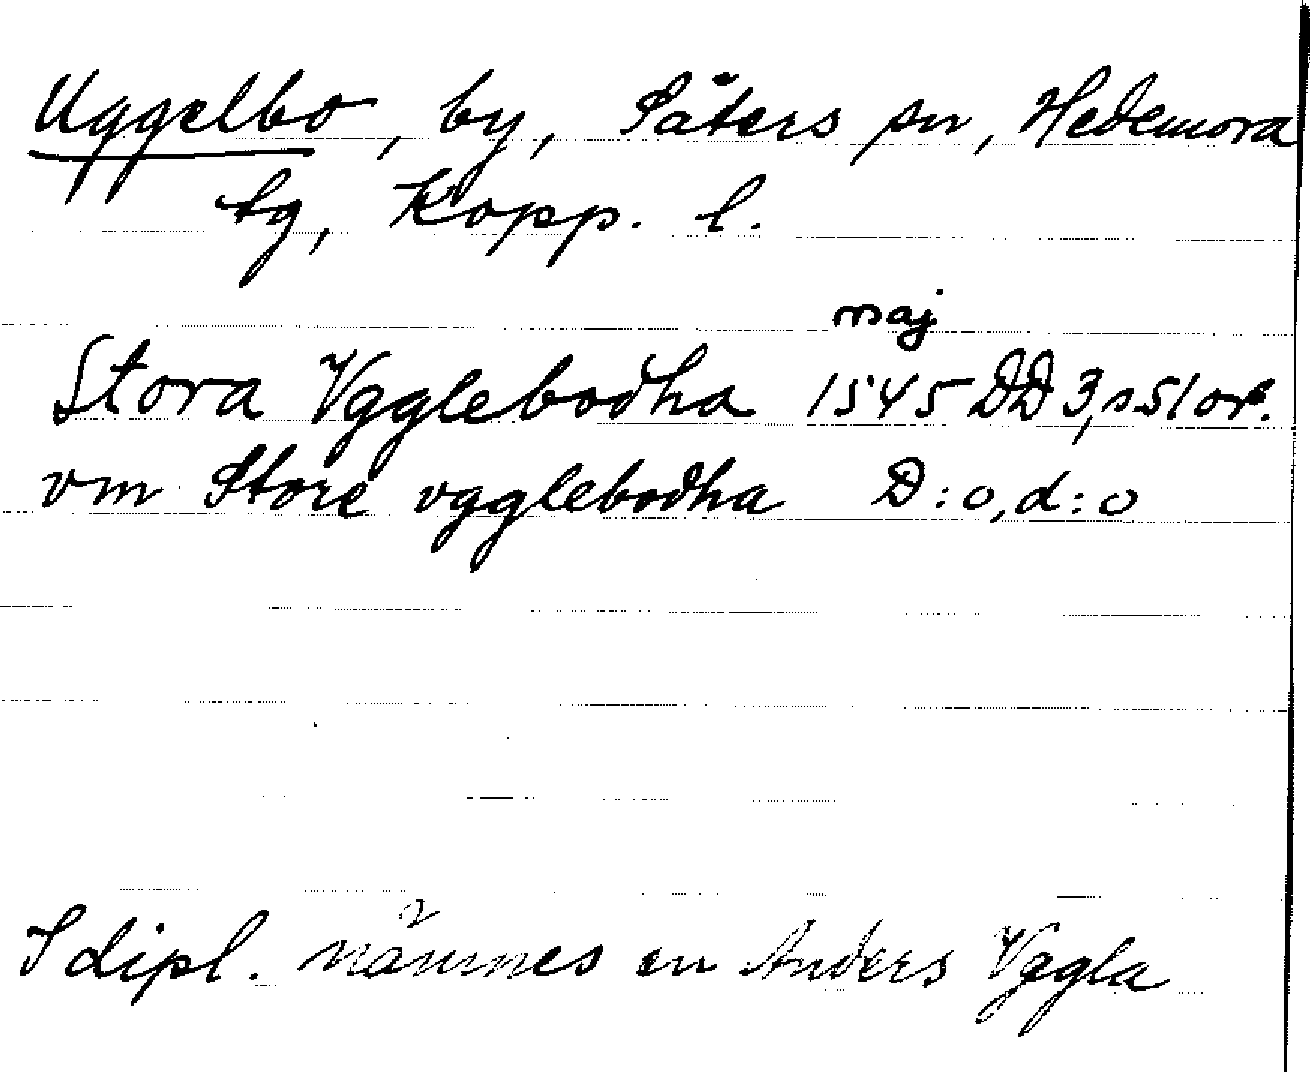 Uggelbo, by, Säters sn, Hedemora
tg, Kopp. l.
maj
Stora Vgglebodha 1545 DD 3, s 51 or.
vm Store vgglebodha D:o, d:o
I dipl. nämnes en Anders Vggla